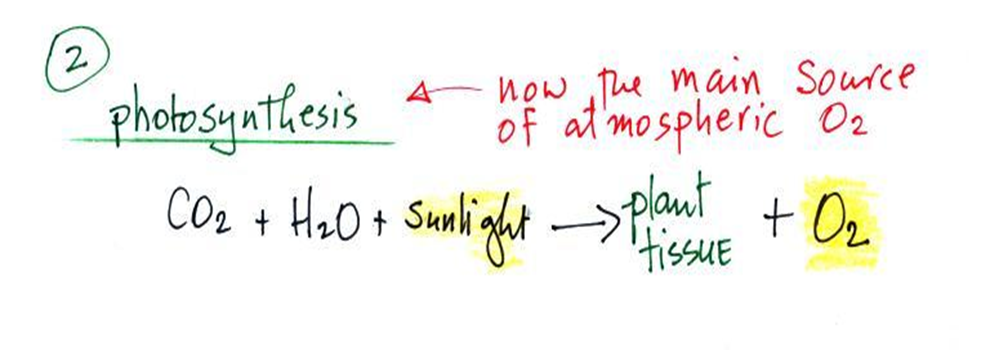 2
photosynthesis ← now the main source
of atmospheric O2
CO2 + H2O + Sunlight → plant tissue + O2